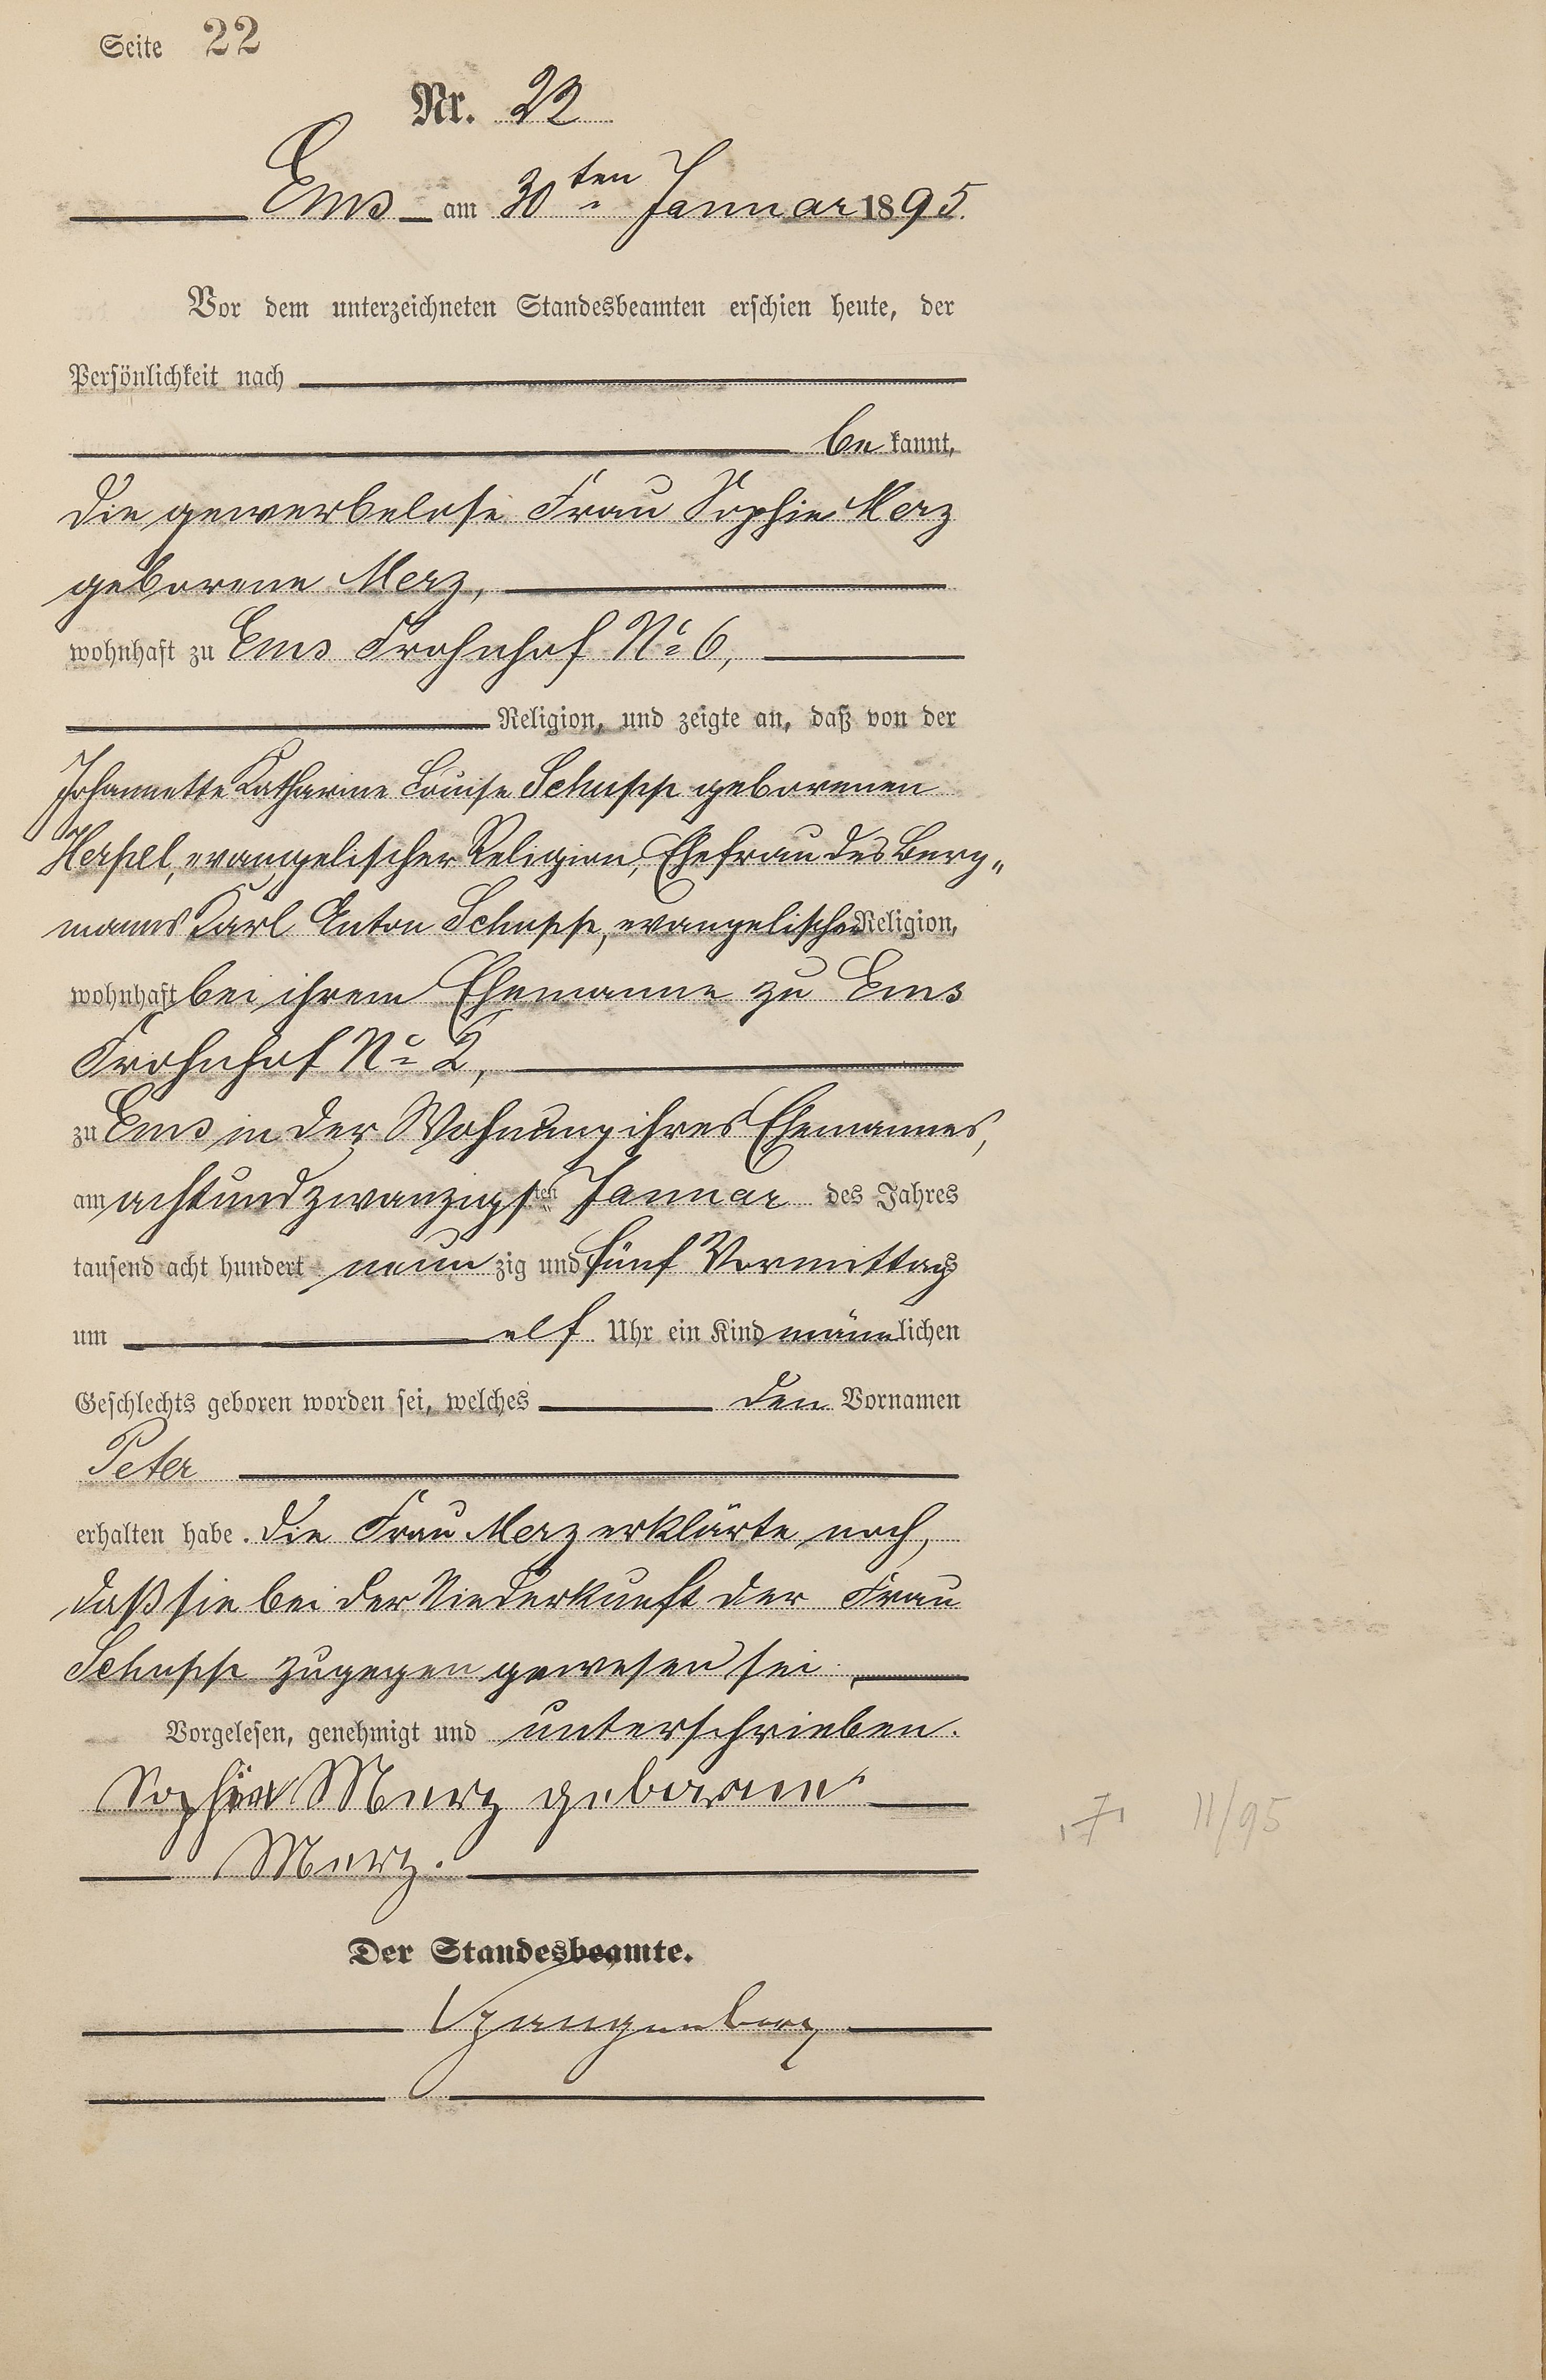 Seite 22
Nr. 22
Ems am 30ten Januar 1895.
Vor dem unterzeichneten Standesbeamten erschien heute, der
Persönlichkeit nach
bekannt,
die gewerbelose Frau Sophie Merz
geborene Merz,
wohnhaft zu Ems Frohnhof No 6,
Religion, und zeigte an, daß von der
Johannette Katharine Louise Schupp geborenen
Herpel, evangelischer Religion, Ehefrau des Berg„
manns Karl Anton Schupp, evangelischer Religion,
wohnhaft bei ihrem Ehemanne zu Ems
Frohnhof No 2,
zu Ems in der Wohnung ihres Ehemannes,
am achtundzwanzigsten Januar des Jahres
tausend acht hundert neunzig und fünf Vormittags
um elf Uhr ein Kind männlichen
Geschlechts geboren worden sei, welches den Vornamen
Peter
erhalten habe. Die Frau Merz erklärte noch,
daß sie bei der Niederkunft der Frau
Schupp zugegen gewesen sei.
Vorgelesen, genehmigt und unterschrieben.
Sophie Merz geborene
Merz.
Der Standesbeamte.
11/95